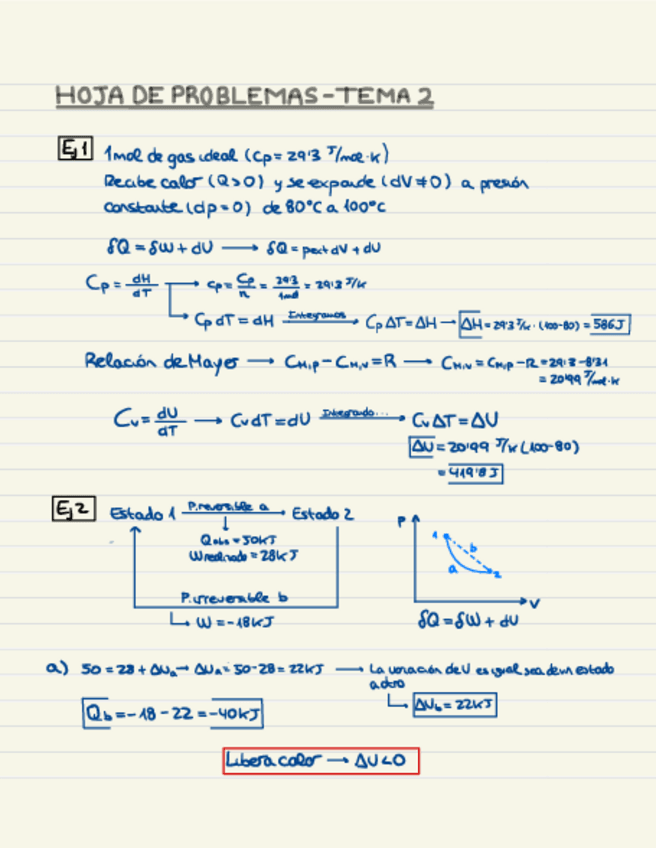 HOJA DE PROBLEMAS - TEMA 2
Ej 1 1 mol de gas ideal (Cp = 29'3 J/mol·K)
Recibe calor (Q>0) y se expande (dV≠0) a presión
constante (dp=0) de 80°C a 100°C
δQ = δW + dU → δQ = p ext dV + dU
Cp = dH/dT → cp = Cp/n = 29'3/1mol = 29'3 J/K
Cp dT = dH Integramos → Cp ΔT = ΔH → ΔH = 29'3 J/K · (100-80) = 586 J
Relación de Mayer → CM,p - CM,V = R → CM,V = CM,p - R = 29'3 - 8'31
= 20'99 J/mol·K
Cv = dU/dT → Cv dT = dU Integrando... → Cv ΔT = ΔU
ΔU = 20'99 J/K (100-80)
= 419'8 J
Ej 2 Estado 1 P. reversible a → Estado 2
Qabs = 50 kJ
W realizado = 28 kJ
P. irreversible b
W = -18 kJ
P
1
b
a
2
V
δQ = δW + dU
a) 50 = 28 + ΔUa → ΔUa = 50 - 28 = 22 kJ → La variación de U es igual sea de un estado
a otro
ΔUb = 22 kJ
Qb = -18 - 22 = -40 kJ
Libera calor → ΔU < 0